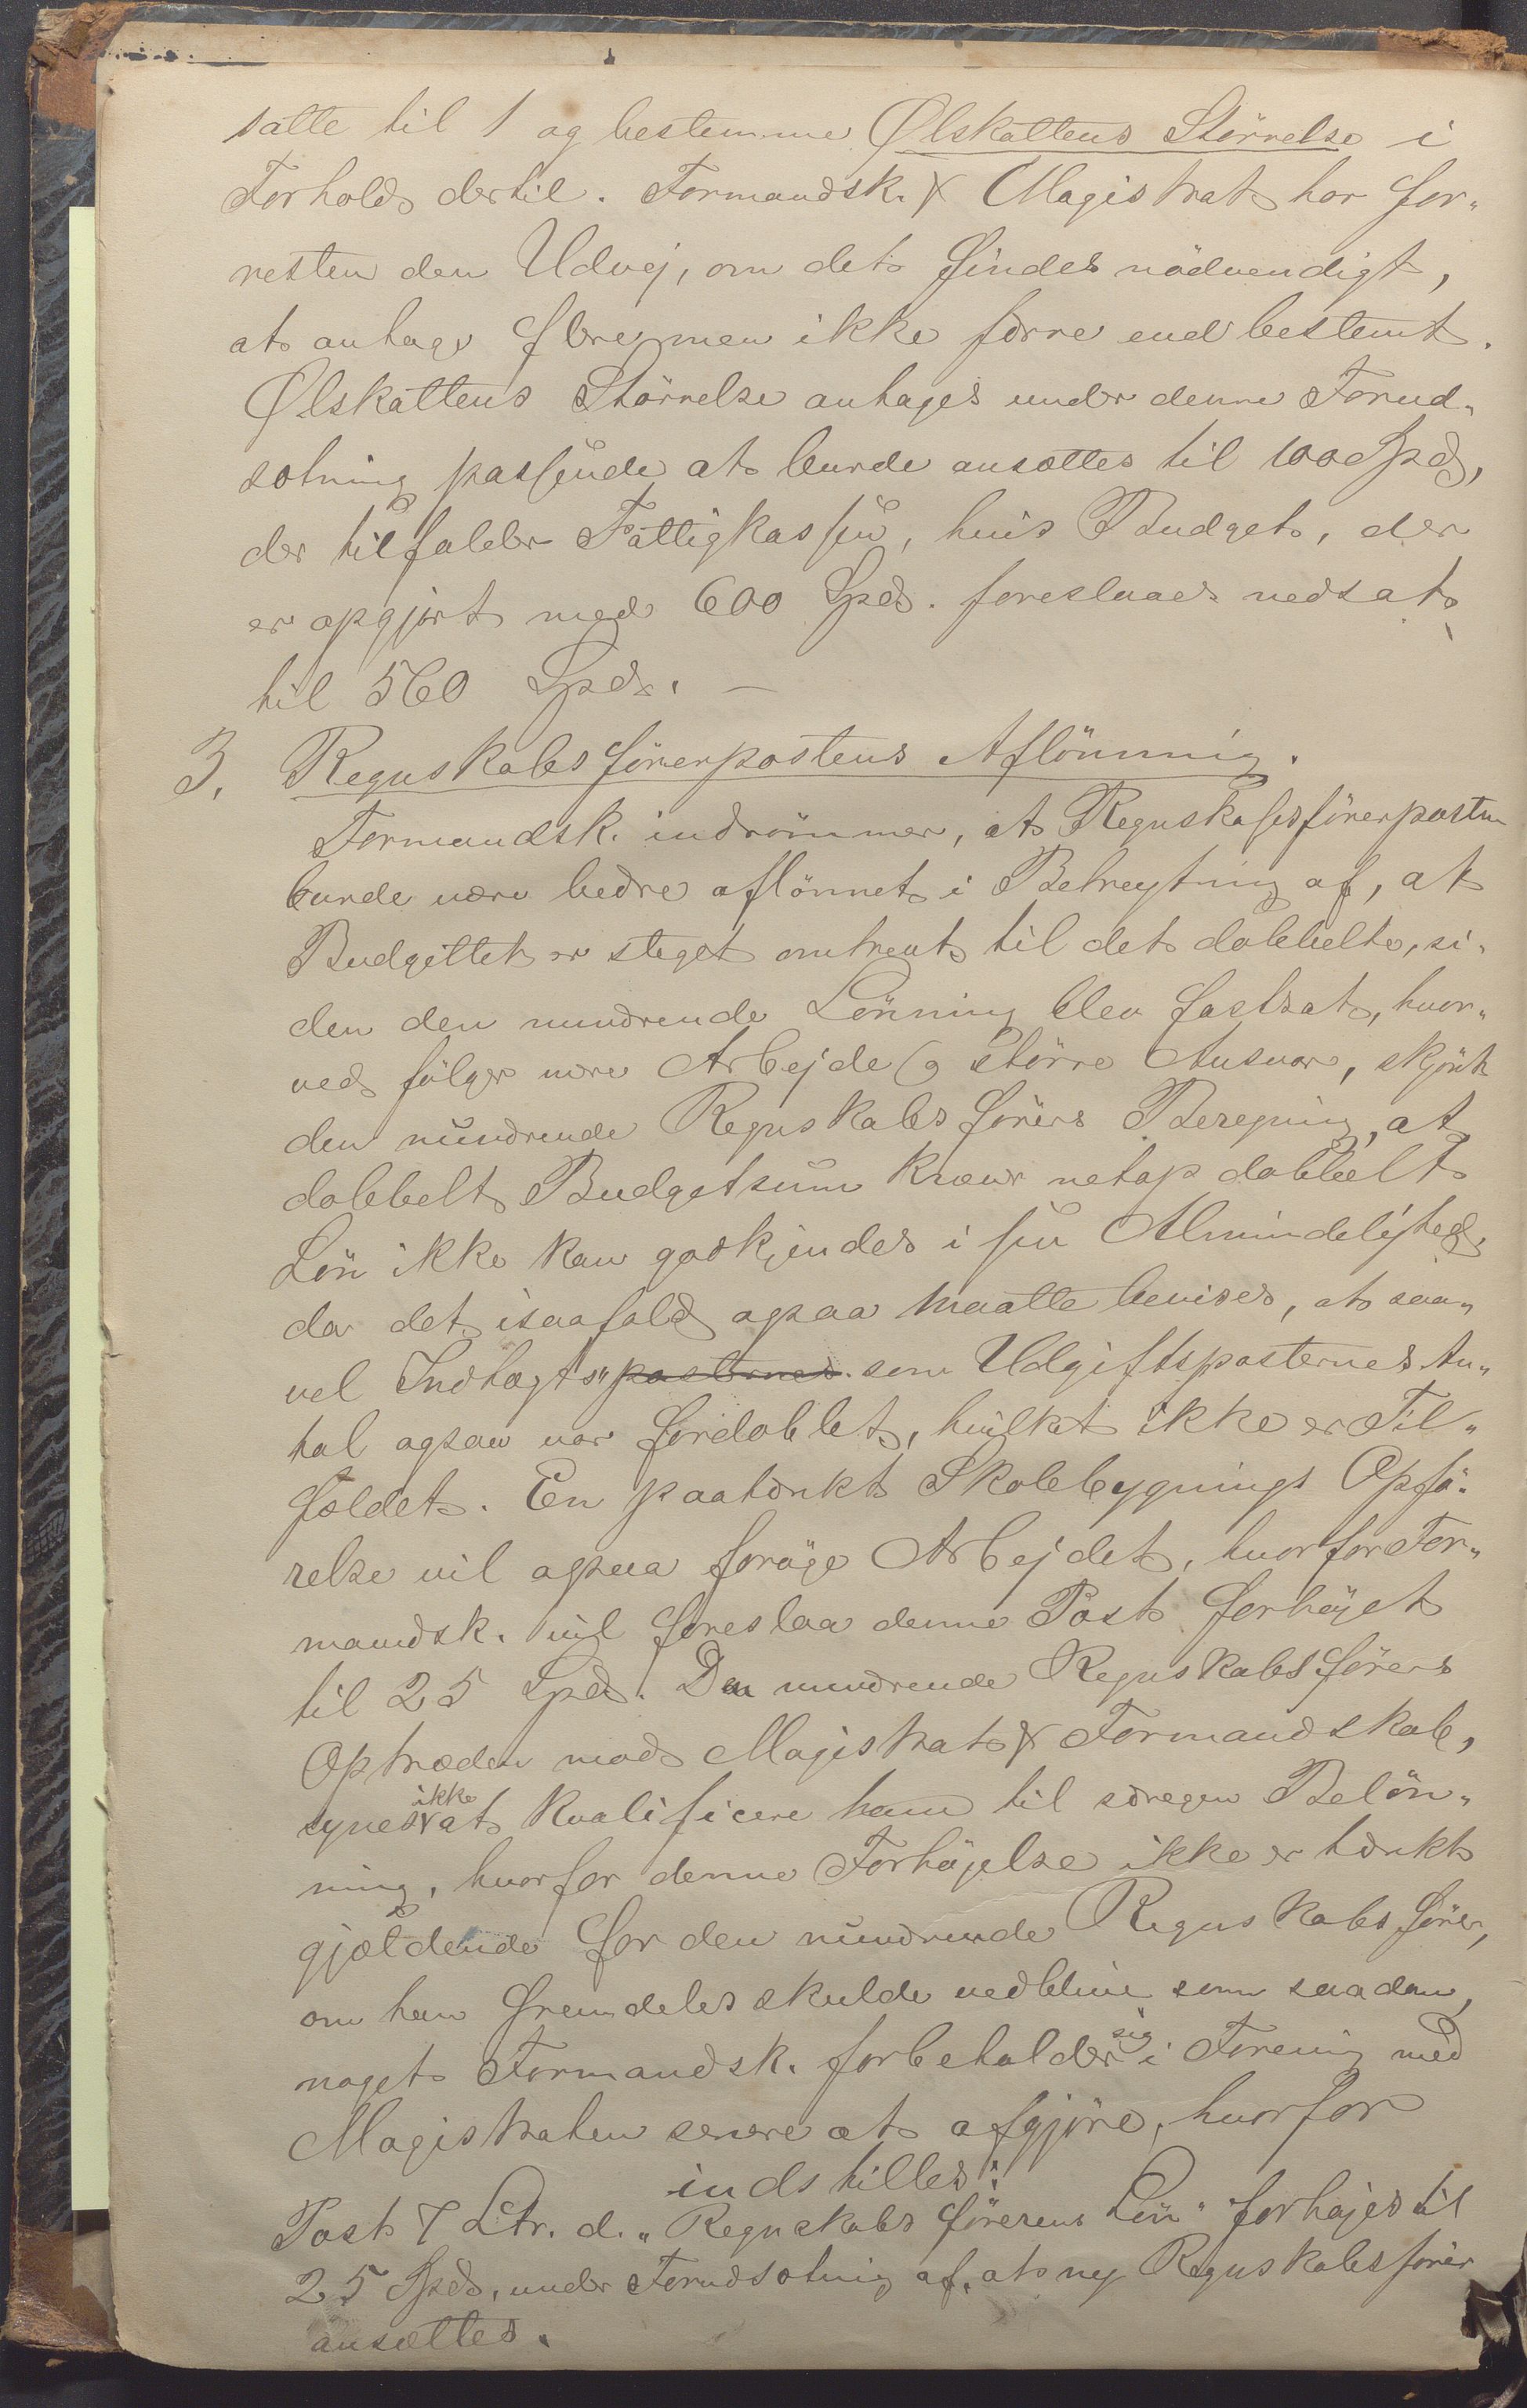 satte til 1 og bestemme Ølskattens Störrelse i
Forhold dertil. Formandsk. & Magistrat har for„
resten den Udvej, om det findes nödvendigt,
at antage flere men ikke færre end bestemt.
Ølskattens Störrelse antages under denne Forud„
sætning passende at burde ansættes til 100 Spd,
der tilfalder Fattigkassen, hvis Budget, der
er opgjort med 600 Spd. foreslaaes nedsat
til 560 Spd. —
3. Regnskabsförerpostens Aflönning.
Formandsk. indrömmer, at Regnskabsförerposten
burde være bedre aflönnet i Betragtning af, at
Budgettet er steget omtrent til det dobbelte, si„
den den nuværende Lönning blev fastsat, hvor„
ved fölger mere Arbejde og större Ansvar, skjönt
den nuværende Regnskabsförers Beregning, at
dobbelt Budgetsum kræver netop dobbelt
Lön ikke kan godkjendes i sin Almindelighed,
da det isaafald ogsaa maatte bevises, at saa„
vel Indtægts„ posternes som Udgiftsposternes An„
tal ogsaa var fordoblet, hvilket ikke er Til„
fældet. En paatænkt Skolebygnings Opfö„
relse vil ogsaa foröge Arbejdet, hvorfor For„
mandsk. vil foreslaa denne Post forhöjet
til 25 Spd. Den nuværende Regnskabsförers
Optræden mod Magistrat & Formandskab,
synes ikke at kvalificere ham til særegen Belön„
ning, hvorfor denne Forhöjelse ikke er tænkt
gjældende for den nuværende Regnskabsförer,
om han fremdeles skulde vedblive som saadan,
noget Formandsk. forbeholder sig i Forening med
Magistraten senere at afgjöre, hvorfor
indstilles:
Post 7 Ltr. d. „Regnskabsförerens Lön“ forhöjes til
25 Spd, under Forudsætning af, at ny Regnskabsförer
ansættes.